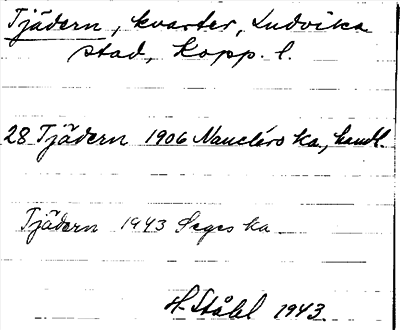 Tjädern, kvarter, Ludvika
stad, Kopp. l.
28 Tjädern 1906 Nauclérs ka, handl.
Tjädern 1943 Seges ka
H. Ståhl 1943.